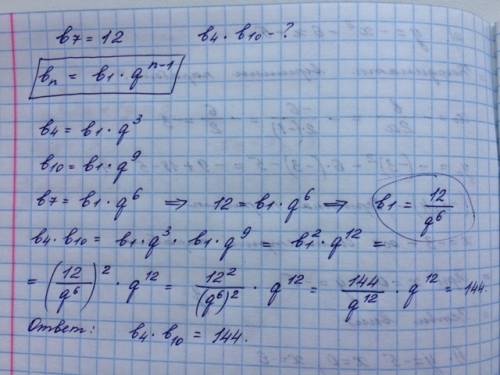 b7 = 12 b4 · b10 - ?
bn = b1 · q^(n-1)
b4 = b1 · q³
b10 = b1 · q⁹
b7 = b1 · q⁶ ⇒ 12 = b1 · q⁶ ⇒ b1 = 12/q⁶
b4 · b10 = b1 · q³ · b1 · q⁹ = b1² · q¹² =
= (12/q⁶)² · q¹² = 12²/(q⁶)² · q¹² = 144/q¹² · q¹² = 144.
Ответ: b4 · b10 = 144.